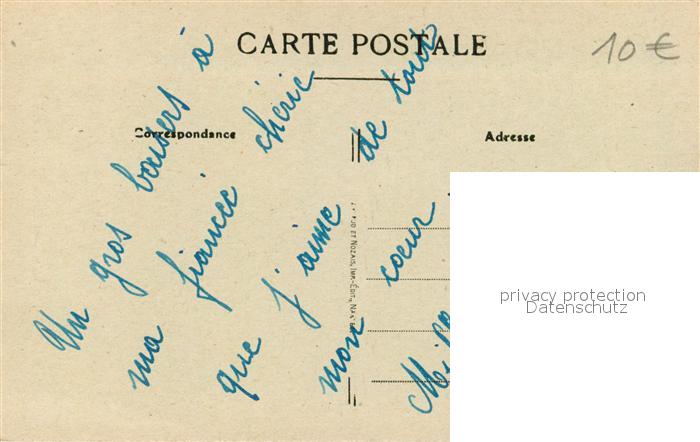 CARTE POSTALE
10 €
Correspondance
Adresse
Un gros baisers à
ma fiancée chérie
que j'aime de tout
mon coeur
ET NOZAIS, IMP.-ÉDIT., NANTES
privacy protection
Datenschutz